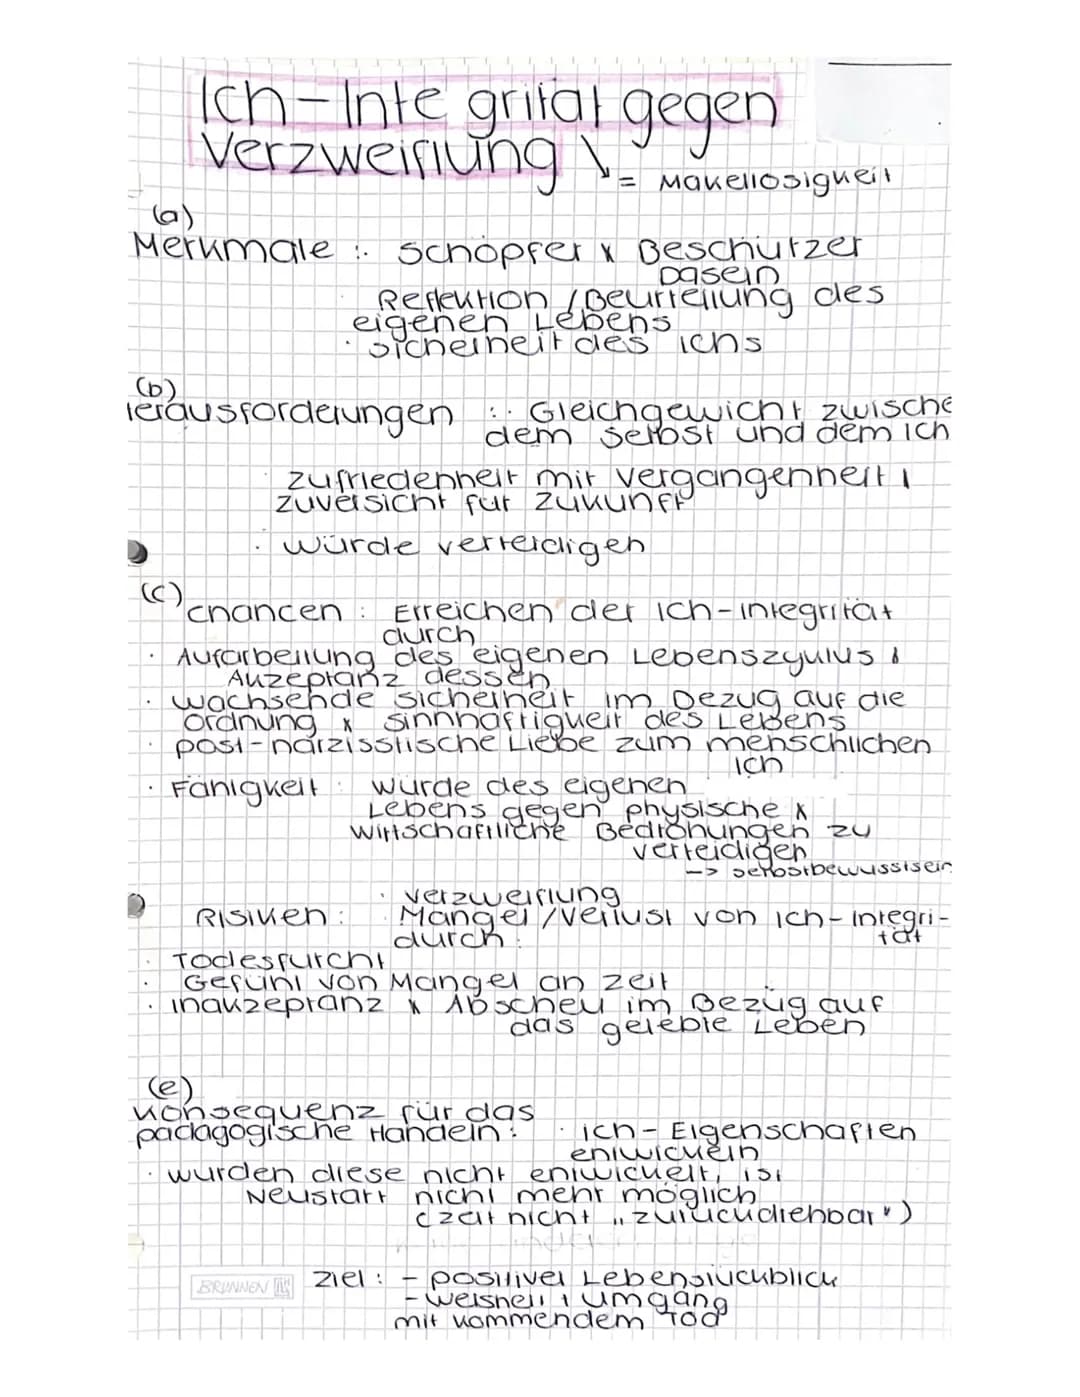 Ich-Integrität gegen
Verzweiflung ↘ = Makellosigkeit
(a)
Merkmale : · Schöpfer & Beschützer
Dasein
Reflektion / Beurteilung des
eigenen Lebens
· Sicherheit des Ichs
(b)
Herausforderungen : · Gleichgewicht zwische
dem Selbst und dem ich
· Zufriedenheit mit Vergangenheit,
Zuversicht für Zukunft
· Würde verteidigen
(c)
Chancen : Erreichen der Ich-Integrität
durch
· Aufarbeitung des eigenen Lebenszyklus &
Akzeptanz dessen
· wachsende Sicherheit im Bezug auf die
Ordnung & Sinnhaftigkeit des Lebens
· post-narzisstische Liebe zum menschlichen
Ich
· Fähigkeit : Würde des eigenen
Lebens gegen physische &
wirtschaftliche Bedrohungen zu
verteidigen
-> Selbstbewusstsein
· Verzweiflung
Risiken : · Mangel / Verlust von Ich-Integri-
tät
durch :
· Todesfurcht
· Gefühl von Mangel an Zeit
· Inakzeptanz & Abscheu im Bezug auf
das gelebte Leben
(e)
Konsequenz für das
pädagogische Handeln : · ich-Eigenschaften
entwickeln
· wurden diese nicht entwickelt, ist
Neustart nicht mehr möglich
(Zeit nicht „zurückdrehbar")
BRUNNEN
Ziel : - positiver Lebensrückblick
- Weisheit, Umgang
mit kommendem Tod